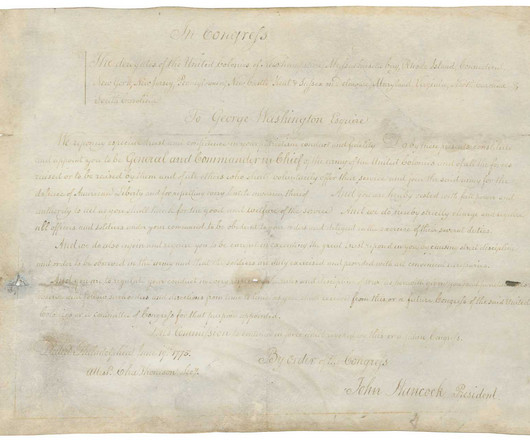 In Congress
The delegates of the United Colonies of New Hampshire, Massachusetts bay, Rhode Island, Connecticut
New York, New Jersey, Pennsylvania, New Castle Kent & Sussex on Delaware, Maryland, Virginia, North Carolina &
South Carolina
To George Washington Esquire
We reposing especial trust and confidence in your patriotism, conduct and fidelity Do by these presents constitute
and appoint you to be General and Commander in chief of the army of the United Colonies and of all the forces
raised or to be raised by them and of all others who shall voluntarily offer their service and join the said army for the
defence of American Liberty and for repelling every hostile invasion thereof And you are hereby vested with full power and
authority to act as you shall think for the good and welfare of the service And we do hereby strictly charge and require
all officers and soldiers under your command to be obedient to your orders and diligent in the exercise of their several duties.
And we do also enjoin and require you to be careful in executing the great trust reposed in you, by causing strict discipline
and order to be observed in the army and that the soldiers are duly exercised and provided with all convenient necessaries.
And you are to regulate your conduct in every respect by the rules and discipline of war
and directions from time to time from this or a future Congress of the said United
Colonies or a committee of Congress for that purpose appointed.
This Commission to continue in force until revoked by this or a future Congress.
Philadelphia June 19th 1775.
By Order of the Congress
Attest. Cha Thomson Secy
John Hancock President